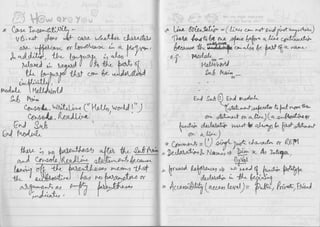 How are you
* Case Insensitivity -
VB.net does not care whether characters
are uppercase or lowercase in a program.
In addition, the language is also
relaxed in regard to the parts of
the language that can be understood
implicitly.
Module HelloWorld
Sub Main
Console.WriteLine ("Hello, world!")
Console.Readline
End Sub
End Module
there is no parenthesis after the Sub Main
and Console.Readline statement because
leaving off the parentheses means that
the subroutine has no parameters or
arguments as empty parenthesis
indicates.
* Line Orientation - (Lines can not end just anywhere)
There has to be one space before a line continuation
because the can also be part of a name.
e.g Module
HelloWorld
Sub Main
End Sub : End module
statement separator to put more than
one statement on a line) (a subroutine or
function declaration must always be first statement
on a line)
* Comments = (') single quote character or REM
* Declarations & Names => Dim x As Integer
* forward References => no need of function prototype
declaration in the beginning
* Accessibility (access level) = Public, Private, Friend